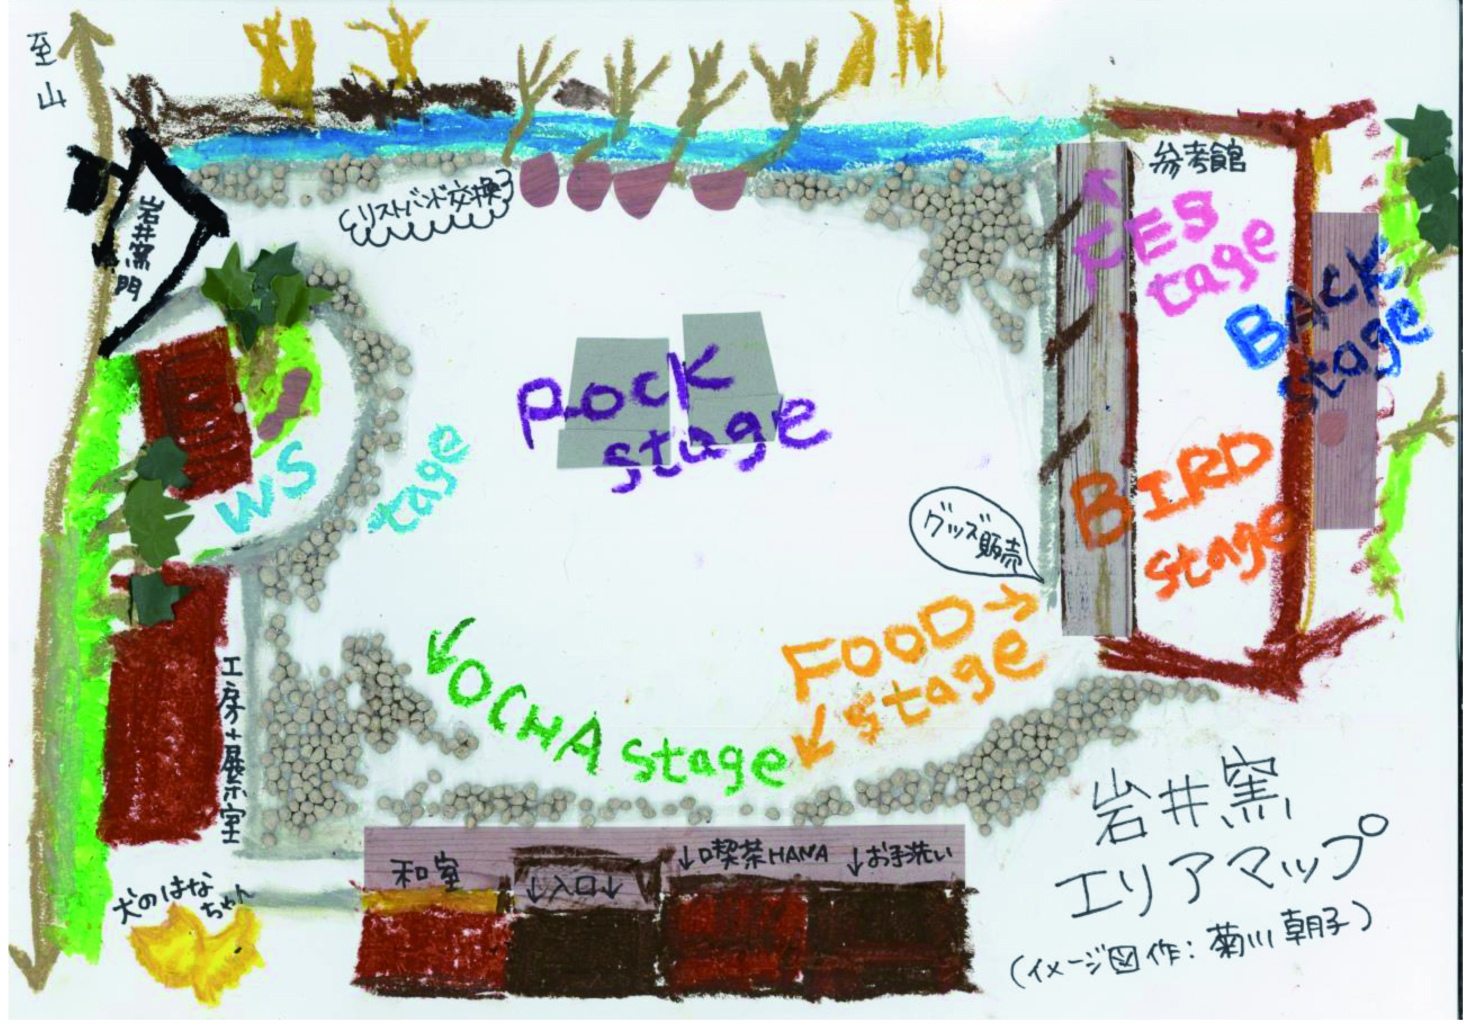 至
山
岩井窯
門
リストバンド交換
参考館
FES
tage
BACK
stage
ROCK
stage
WS
tage
BIRD
stage
グッズ販売
FOOD
stage
OCHA stage
工房+展示室
和室
↓入口↓
↓喫茶HANA
↓お手洗い
犬のはな
ちゃん
岩井窯
エリアマップ
(イメージ図作:菊川朝子)